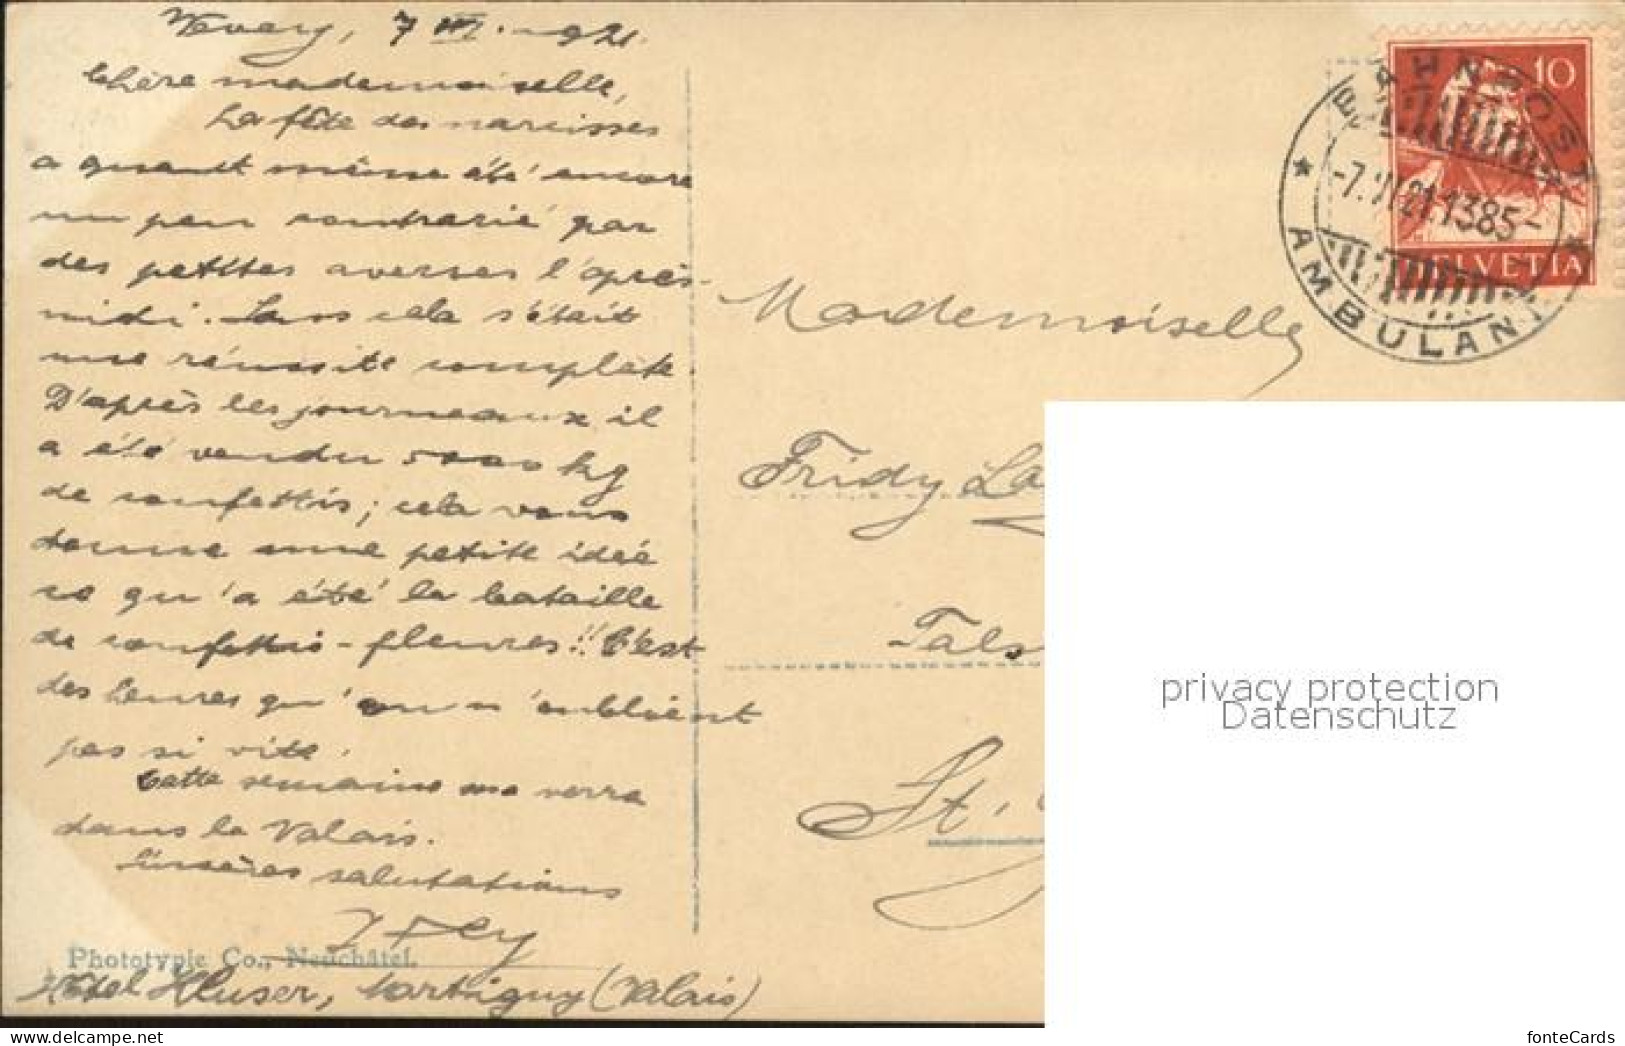 Vevey, 7 VI. 1921.
Chère mademoiselle,
La fête des narcisses
a quant même été encore
un peu contrarié par
des petites averses l'après-
midi. Sans cela s'était
une réussite complète.
D'après les journeaux il
a été vendu 5000 kg
de confettis; cela vous
donne une petite idée
ce qu'a été la bataille
de confettis-fleures!! C'est
des heures qu'on n'oublient
pas si vite.
Cette semaine me verra
dans le Valais.
Sincères salutations
Phototypie Co., Neuchâtel.
Hôtel Kluser, Martigny (Valais)
BAHNPOST
10
-7.VI.21.1385-
HELVETIA
AMBULANT
Mademoiselle
Fridy
St.
privacy protection
Datenschutz
fonteCards